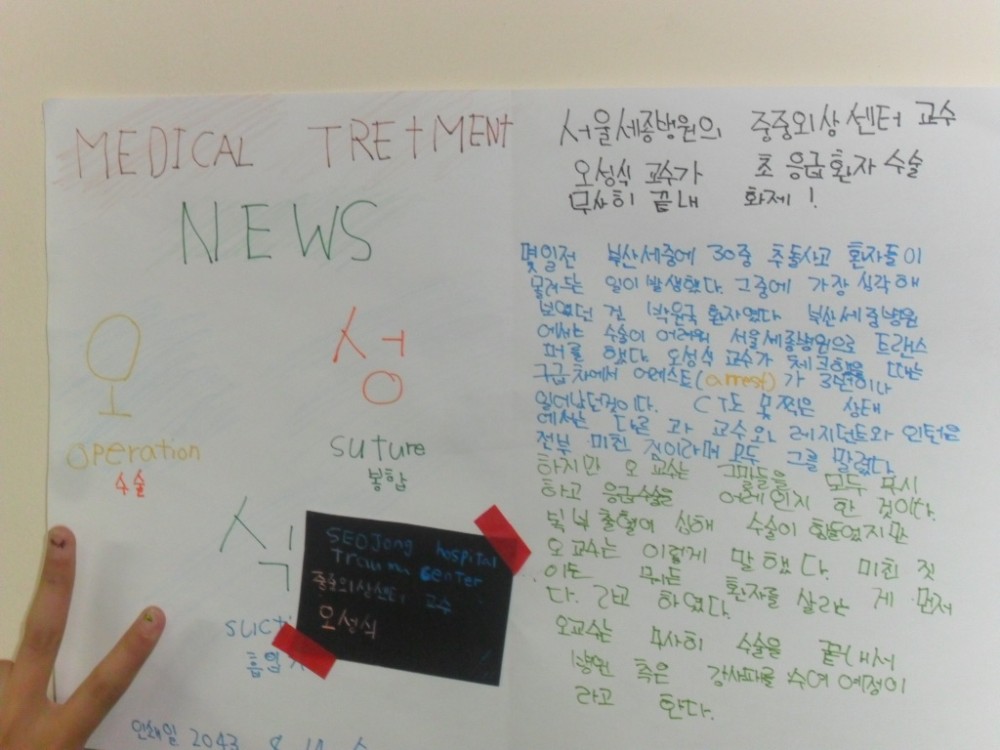 MEDICAL TRETMENT
NEWS
오
operation
수술
성
suture
봉합
식
suct
흡인
SEOJong hospital
Trauma center
중증외상센터 교수
오성식
인쇄일 2043 8
서울세종병원의 중증외상센터 교수
오성식 교수가 초 응급환자 수술
무사히 끝내 화제!
몇일전 부산세종에 30중 추돌사고 환자들이
몰려드는 일이 발생했다. 그중에 가장 심각해
보였던 건 박원국 환자였다 부산세종병원
에서는 수술이 어려워 서울세종병원으로 트랜스
퍼를 했다. 오성식 교수가 체크했을 때는
구급차에서 어레스트(arrest)가 3번이나
일어났던것이다. CT도 못찍은 상태
에서는 다른 과 교수와 레지던트와 인턴은
전부 미친 것이라며 모두 그를 말렸다.
하지만 오 교수는 그말들을 모두 무시
하고 응급수술을 어레인지 한 것이다.
출혈이 심해 수술이 힘들었지만
오교수는 이렇게 말했다. 미친 짓
이든 뭐든 환자를 살리는 게 먼저
다. 라고 하였다.
오교수는 무사히 수술을 끝내서
병원 측은 감사패를 수여 예정이
라고 한다.